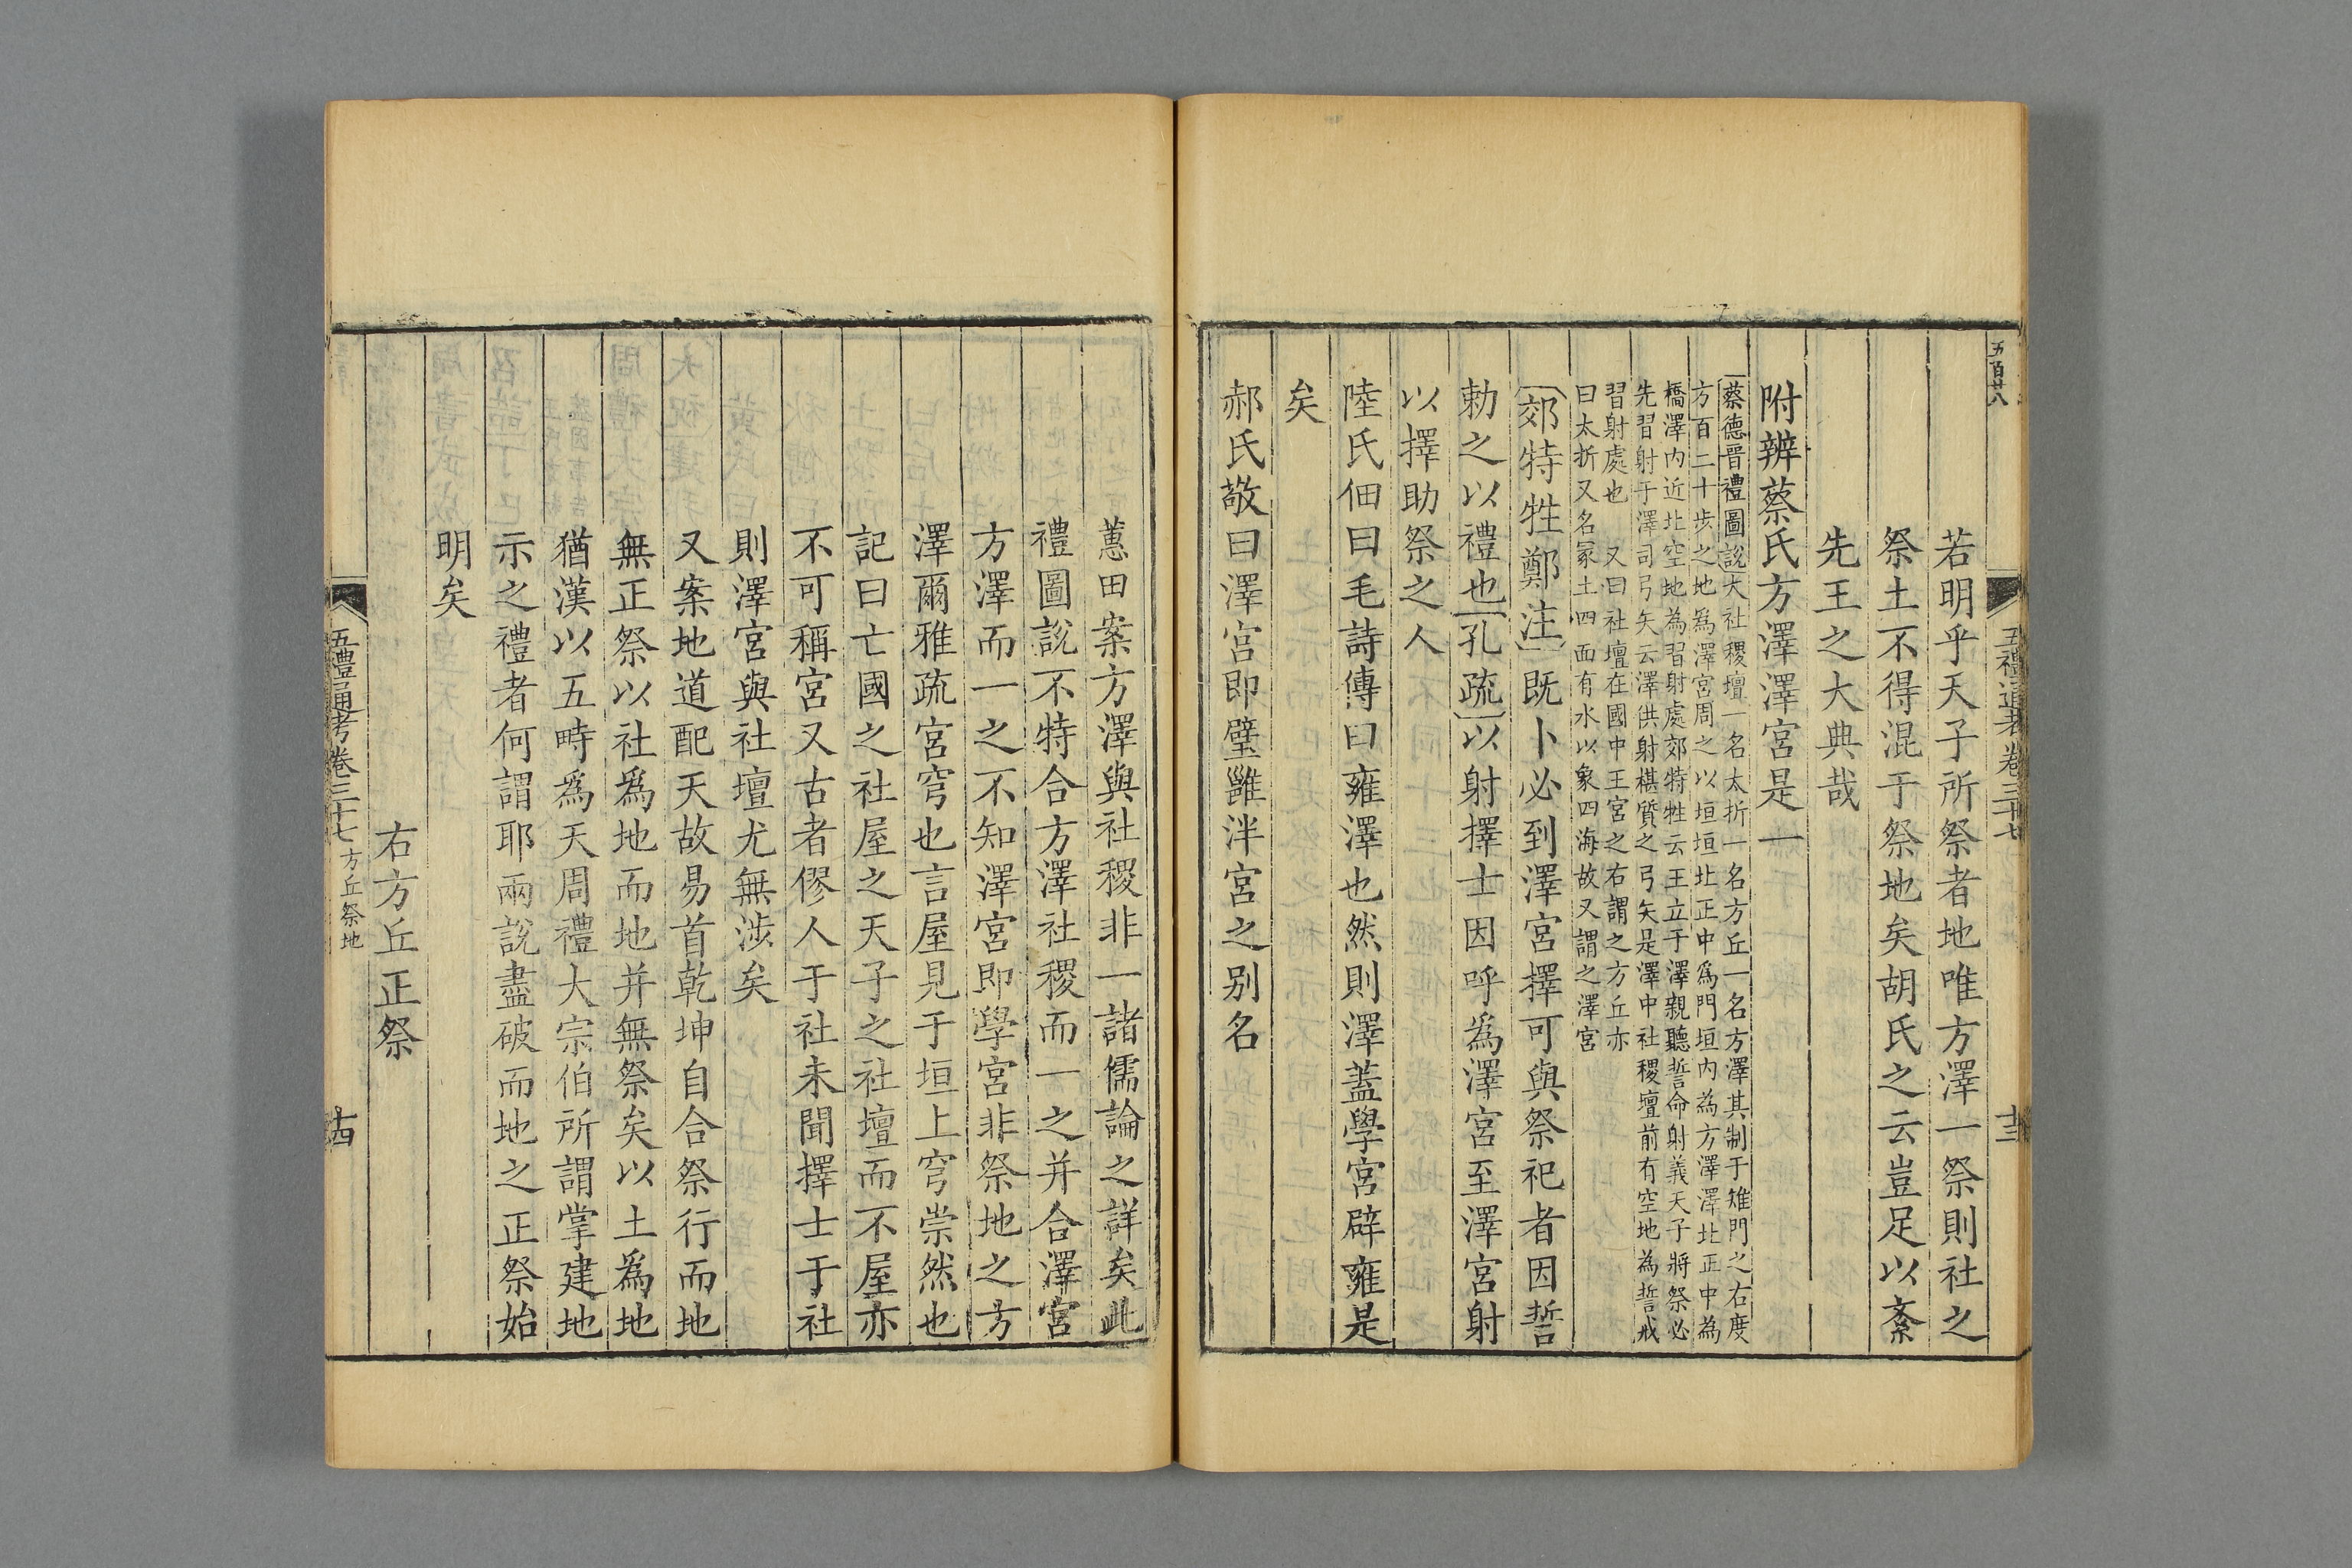 五百廿八
五禮通考卷三十七
十三
若明乎天子所祭者地唯方澤一祭則社之
祭土不得混于祭地矣胡氏之云豈足以紊
先王之大典哉
附辨蔡氏方澤澤宮是一
蔡德晋禮圖説大社稷壇一名太折一名方丘一名方澤其制于雉門之右度
方百二十步之地爲澤宮周之以垣垣北正中爲門垣内為方澤澤北正中為
橋澤内近北空地為習射處郊特牲云王立于澤親聽誓命射義天子將祭必
先習射于澤司弓矢云澤供射椹質之弓矢是澤中社稷壇前有空地為誓戒
習射處也　又曰社壇在國中王宮之右謂之方丘亦
曰太折又名冢土四面有水以象四海故又謂之澤宮
郊特牲鄭注既卜必到澤宮擇可與祭祀者因誓
勅之以禮也孔疏以射擇士因呼爲澤宮至澤宮射
以擇助祭之人
陸氏佃曰毛詩傳曰雍澤也然則澤蓋學宮辟雍是
矣
郝氏敬曰澤宮即璧雝泮宮之别名
蕙田案方澤與社稷非一諸儒論之詳矣此
禮圖説不特合方澤社稷而一之并合澤宮
方澤而一之不知澤宮即學宮非祭地之方
澤爾雅疏宮穹也言屋見于垣上穹崇然也
記曰亡國之社屋之天子之社壇而不屋亦
不可稱宮又古者僇人于社未聞擇士于社
則澤宮與社壇尤無涉矣
又案地道配天故易首乾坤自合祭行而地
無正祭以社爲地而地并無祭矣以土爲地
猶漢以五畤爲天周禮大宗伯所謂掌建地
示之禮者何謂耶兩説盡破而地之正祭始
明矣
右方丘正祭
五禮通考卷三十七　方丘祭地
十四